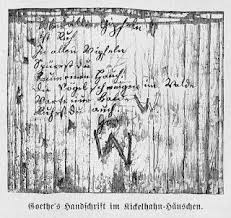 allen Gipfeln
Ist Ruh
In allen Wipfeln
Spürest du
Kaum einen Hauch.
die Vögel schweigen im Walde
Warte nur balde
du auch
W
Goethe's Handschrift im Kickelhahn-Häuschen.